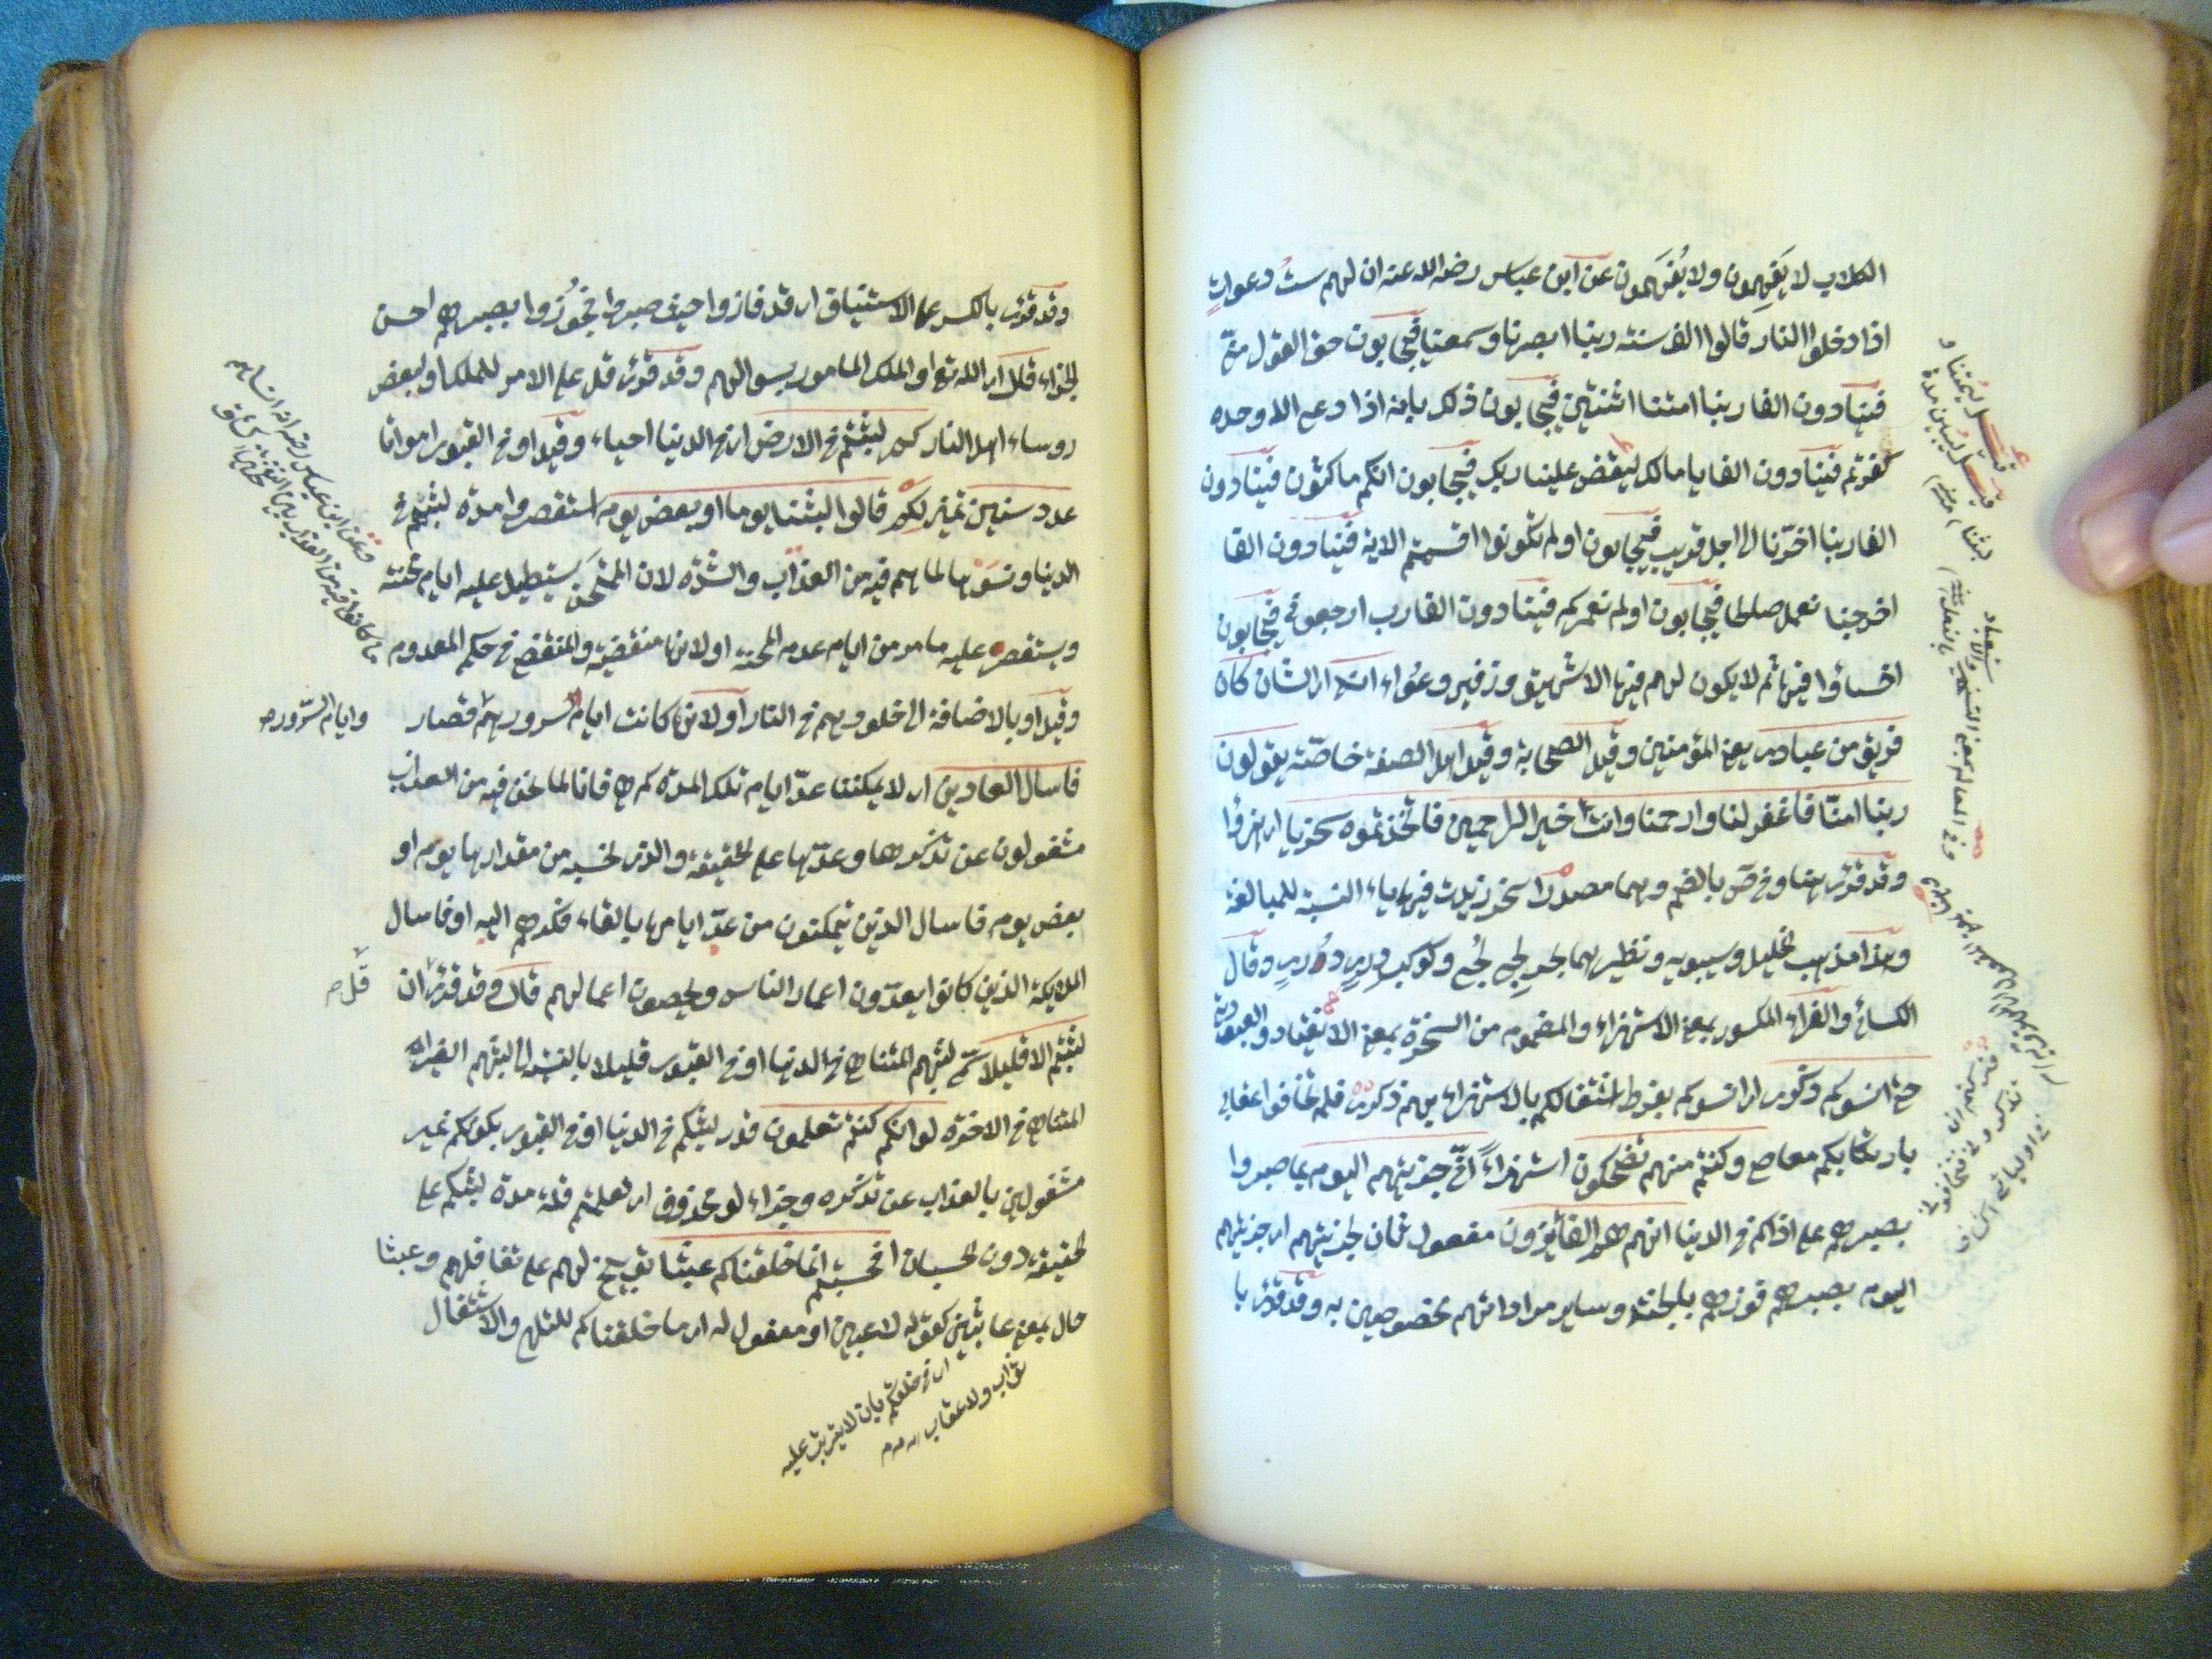 الكلاب لا يَفهمون ولا يُفهَمون عن ابن عباس رضى الله عنه ان لهم ست دعوات
اذا دخلوا النار قالوا الف سنة ربنا ابصرنا وسمعنا فيجابون حق القول منى
فينادون الفا ربنا امتنا اثنتين فيجابون ذلكم بانه اذا دعى الله وحده
كفرتم فينادون الفا يا مالك ليقض علينا ربك فيجابون انكم ماكثون فينادون
الفا ربنا اخرنا الى اجل قريب فيجابون اولم تكونوا اقسمتم الاية فينادون الفا
اخرجنا نعمل صالحا فيجابون اولم نعمركم فينادون الفا رب ارجعونى فيجابون
اخسأوا فيها ثم لا يكون لهم فيها الا شهيق وزفير وعواء انه اى الشان كان
فريق من عبادى يعنى المؤمنين وقيل الصحابة وقيل اهل الصفة خاصة يقولون
ربنا امنا فاغفر لنا وارحمنا وانت خير الراحمين فاتخذتموهم سخريا اى هزؤا
وقد قرئ هنا وفى ص بالضم وهما مصدرا سخر زيدت فيها ياء النسبة للمبالغة
وهذا مذهب الخليل وسيبويه ونظيرهما بحر لجى لجى وكوكب درى درى وقال
الكسائى والفراء المكسور بمعنى الاستهزاء والمضموم من السخرة بمعنى الانقياد والعبودية
حتى انسوكم ذكرى اى انسوكم بفرط اشتغالكم بالاستهزاء بهم ذكرى فلم تخافوا عقابى
بارتكابكم معاصى وكنتم منهم تضحكون استهزاء انى جزيتهم اليوم بما صبروا
بصبرهم على اذاكم فى الدنيا انهم هم الفائزون مفعول ثان لجزيتهم اى جزيتهم
اليوم بصبرهم فوزهم بالجنة وساير مراداتهم مخصوصين به وقد قرئ با
وقد قرئ بالكسر على الاستيناف اى قد فازوا حيث صبروا فجوزوا بصبرهم احسن
الجزاء قال اى الله تعالى او الملك المامور بسوالهم وقد قرئ قل على الامر للملك او لبعض
روساء اهل النار كم لبثتم فى الارض اى فى الدنيا احياء وقيل او فى القبور امواتا
عدد سنين تميز لكم قالوا لبثنا يوما او بعض يوم استقصروا مدة لبثهم فى
الدنيا ونسوها لما هم فيه من العذاب والشدة لان الممتحن يستطيل عليه ايام محنته
ويستقصر عليه ما مر من ايام عدم المحنة او لانها منقضية والمنقضى فى حكم المعدوم
وقيل او بالاضافة الى خلودهم فى النار او لانها كانت ايام سرورهم قصار
وايام السرور
فاسال العادين اى لا يمكننا عد ايام تلك المدة كم هى فانا لما نحن فيه من العذاب
مشغولون عن تذكرها وعدها على الحقيقة والذى نحسبه من مقدارها يوم او
بعض يوم فاسال الذين يتمكنون من عد ايامها بالقاء فكرهم اليه او فاسال
الملايكة الذين كانوا يعدون اعمار الناس ويحصون اعمالهم قال وقد قرئ ان
قل
لبثتم الا قليلا سمى لبثهم المتناهى فى الدنيا او فى القبور قليلا بالنسبة الى لبثهم الغير
المتناهى فى الاخرة لو انكم كنتم تعلمون قدر لبثكم فى الدنيا او فى القبور بكونكم غير
مشغولين بالعذاب عن تذكره وجزاء لو محذوف اى لعلمتم قلة مدة لبثكم على
الحقيقة دون الحسبان افحسبتم انما خلقناكم عبثا توبيخ لهم على تغافلهم وعبثا
حال بمعنى عابثين كقوله لاعبين او مفعول له اى ما خلقناكم للتلهى والاشتغال
خلقكم بان لا يترتب عليه
ثواب ولا عقاب